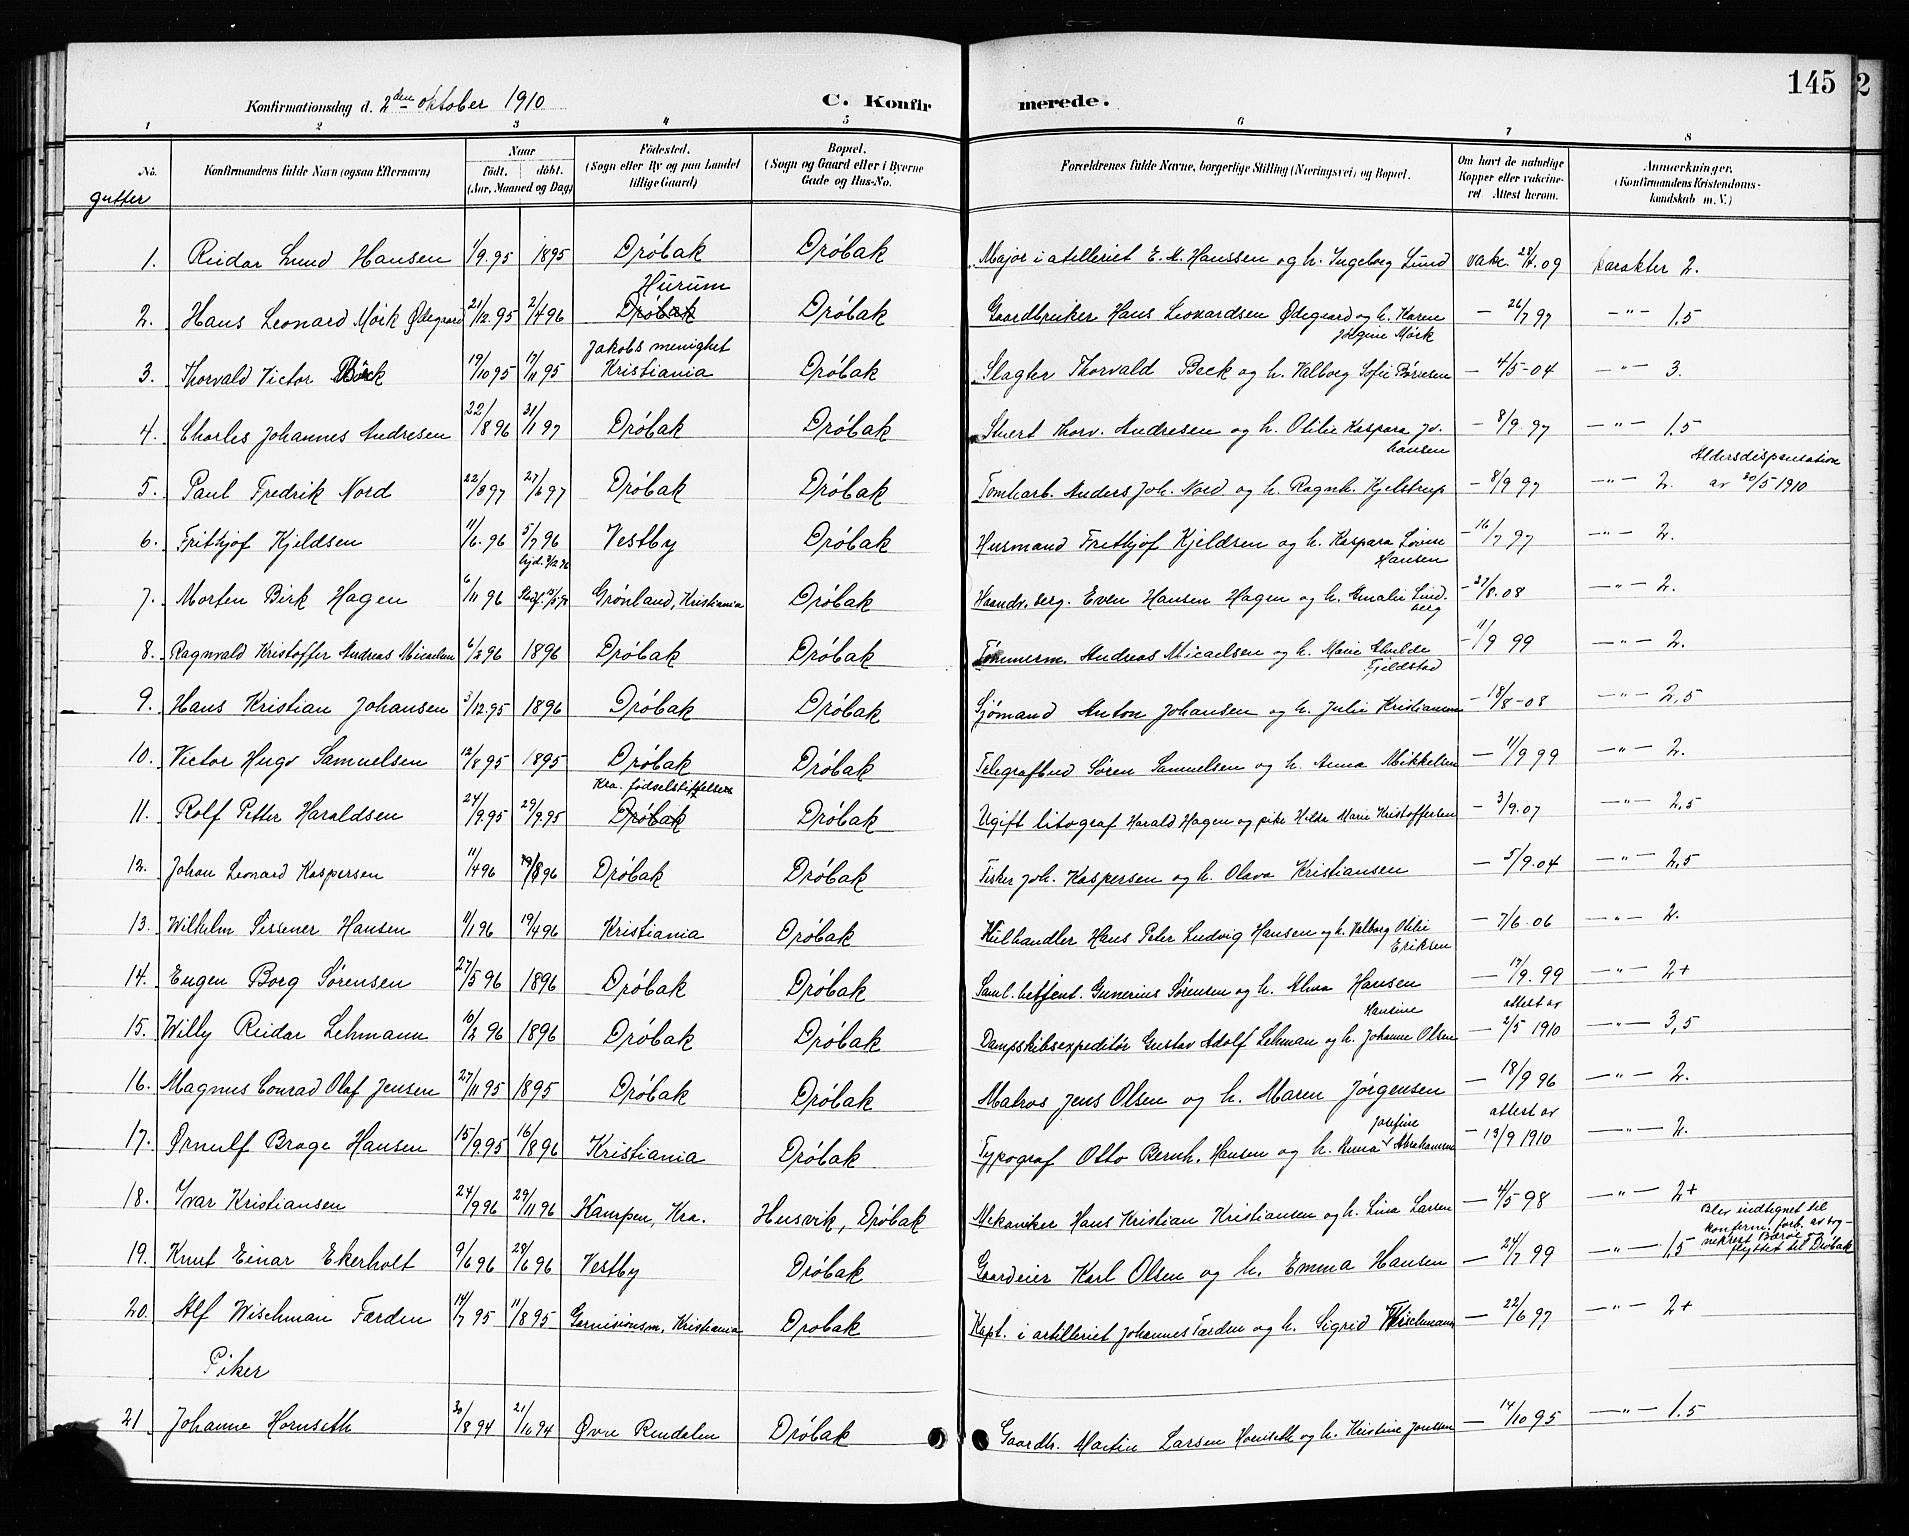 145
2
Konfirmationsdag d. 2den oktober 1910
C. Konfirmerede.
1 2 3 4 5 6 7 8
No. Konfirmandens fulde Navn (ogsaa Efternavn) Naar födt. döbt. (Aar, Maaned og Dag) Födested. (Sogn eller By og paa Landet tillige Gaard) Bopæl. (Sogn og Gaard eller i Byerne Gade og Hus-No. Forældrenes fulde Navne, borgerlige Stilling (Næringsvei) og Bopæl. Om havt de naturlige Kopper eller vakcineret. Attest herom. Anmerkninger. (Konfirmandens Kristendomskundskab m. V.)
gutter
1. Reidar Lund Hansen 1/9.95 1895 Dröbak Dröbak Major i atilleriet E. M. Hanssen og h. Ingeborg Lund vakc. 28/4.09 karakter 2.
2. Hans Leonard Mörk Ødegaard 21/12.95 2/4 96 Hurum Dröbak Dröbak Gaardbruker Hans Leonardsen Ødegaard og h. Karen Jörgine Mörk — 26/7 97 —"— 1,5
3. Thorvald Victor Beck 19/10 95 17/11 95 Jakobs menighet Kristiania Dröbak Slagter Thorvald Beck og h. Valborg Sofie Börresen — 4/5-04 —"— 3.
4. Charles Johannes Andresen 22/8 96 31/1 97 Dröbak Dröbak Stuert Thorv. Andresen og h. Otilie Kaspara Johansen — 8/9 97 —"— 1,5
5. Paul Fredrik Nord 22/8 97 27/6 97 Dröbak Dröbak Tomtarb. Anders Joh. Nord og h. Ragnh. Kjelstrup — 8/9 97 —"— 2. Aldersdispensation av 20/5 1910
6. Frithjof Kjeldsen 11/6. 96 5/7 96 Vestby Dröbak Husmand Frithjof Kjeldsen og h. Kaspara Lovise Hansen — 16/7 97 —"— 2.
7. Morten Birk Hagen 6/11 96 Grönland, Kristiania Dröbak Haandv.berg. Even Hansen Hagen og h. Amalie Lindberg — 27/8.08 —"— 2.
8. Ragnvald Kristoffer Andreas Micaelsen 6/2 96 1896 Dröbak Dröbak Tömmerm. Andreas Micaelsen og h. Marie Fjeldstad — 11/9 99 —"— 2.
9. Hans Kristian Johansen 3/12.95 1896 Dröbak Dröbak Sjömand Anton Johansen og h. Julie Kristiansen — 18/8-08 —"— 2,5
10. Victor Hugo Samuelsen 12/8 95 1895 Dröbak Dröbak Telegrafbud Sören Samuelsen og h. Anna Mikkelsen — 11/9 99 —"— 2.
11. Rolf Petter Haraldsen 24/9.95 29/9.95 Kra. födselsstiftelse Dröbak Dröbak Ugift litograf Harald Hagen og pike Hilda Marie Kristoffersen — 3/9.07 —"— 2,5
12. Johan Leonard Kaspersen 11/4 96 19/8 96 Dröbak Dröbak Fisker Joh. Kaspersen og h. Olava Kristiansen — 5/9.04 —"— 2,5
13. Wilhelm Sissener Hansen 11/1 96 19/4 96 Kristiania Dröbak Kulhandler Hans Peter Ludvig Hansen og h. Valborg Otilie Eriksen — 7/6.06 —"— 2.
14. Eugen Borg Sørensen 27/5 96 1896 Dröbak Dröbak Saml. betjent. Gunerius Sørensen og h. Alma Hansen — 17/9.99 —"— 2+
15. Willy Reidar Lehmann 10/2 96 1896 Dröbak Dröbak Dampskibsexpeditör Gustav Adolf Lehman og h. Johanne Hansine Olsen attest av — 2/5 1910 —"— 3,5
16. Magnus Conrad Olaf Jensen 27/11 95 1895 Dröbak Dröbak Matros Jens Olsen og h. Maren Jörgensen — 18/9 96 —"— 2.
17. Ørnulf Brage Hansen 15/9.95 16/8 96 Kristiania Dröbak Typograf Otto Bernh. Hansen og h. Anna Josefine Abrahamsen attest av — 13/9 1910 —"— 2.
18. Ivar Kristiansen 24/9 96 29/11 96 Kampen, Kra. Husvik, Dröbak Mekaniker Hans Kristian Kristiansen og h. Lina Larsen — 4/5 98 —"— 2+
19. Knut Einar Ekerholt 9/6 96 28/6 96 Vestby Dröbak Gaardeier Karl Olsen og h. Emma Hansen — 24/7 99 —"— 1,5 Blev indtegnet til konfirm. forb. av sognekrest flyttet til Dröbak
20. Alf Wischman Farden 14/7 95 11/8 95 Garnisionsm. Kristiania Drobak Kapt. i artilleriet Johannes Farden og h. Sigrid Wischmann — 22/6 97 —"— 2+
Piker
21 Johanne Hornseth 30/8 94 21/10 94 Øvre Rendalen Dröbak Gaardb. Martin Larsen Hornseth og h. Kristine Jonssen — 14/10 95 —"— 1.5